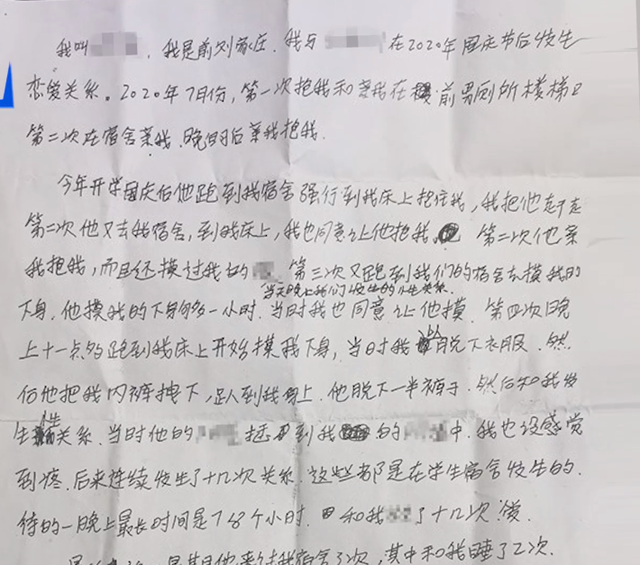 我叫 ，我是前刘家庄，我与 在2020年国庆节后发生
恋爱关系。2020年7月份，第一次抱我和亲我在 前男厕所楼梯口
第二次在宿舍亲我、晚 后亲我抱我.
今年开学国庆后他跑到我宿舍强行到我床上抱住我，我把他 走
第二次他又去我宿舍，到我床上，我也同意让他抱我， 第二次他亲
我抱我，而且还摸过我的 . 第三次又跑到我们的宿舍去摸我的
当天晚上我们发生的 关系.
下身，他摸我的下身 一小时. 当时我也同意让他摸. 第四次晚
上十一点多跑到我床上开始摸我下身，当时我 脱下衣服. 然
后他把我内裤拽下， 到我身上. 他脱下一半裤子. 然后和我发
生性关系. 当时他的 到我 的 中. 我也没感觉
到疼. 后来连续发生了十几次关系. 这些都是在学生宿舍发生的.
待的一晚上最长时间是7 8个小时. 和我 了十几次
其他 过我宿舍 次，其中和我睡了2次.